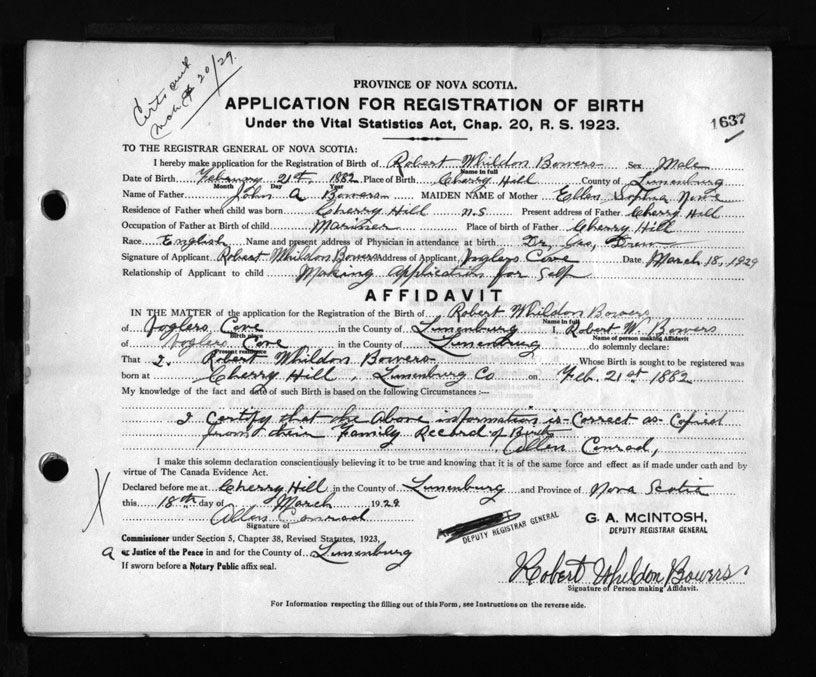 Certs sent
March 20/29.
PROVINCE OF NOVA SCOTIA.
APPLICATION FOR REGISTRATION OF BIRTH
Under the Vital Statistics Act, Chap. 20, R. S. 1923.
1637
TO THE REGISTRAR GENERAL OF NOVA SCOTIA:
I hereby make application for the Registration of Birth of Robert Whildon Bowers Sex Male
Name in full
Date of Birth February 21st, 1882 Place of Birth Cherry Hill County of Lunenburg
Month Day Year
Name of Father John A Bowers MAIDEN NAME of Mother Ellen Sophia
Residence of Father when child was born Cherry Hill N.S Present address of Father Cherry Hill
Occupation of Father at Birth of child Mariner Place of birth of Father Cherry Hill
Race English Name and present address of Physician in attendance at birth Dr, Geo,
Signature of Applicant Robert Whildon Bowers Address of Applicant Voglers Cove Date March 18, 1929
Relationship of Applicant to child Making Application for Self
AFFIDAVIT
IN THE MATTER of the application for the Registration of the Birth of Robert Whildon Bowers
Name in full
of Voglers Cove in the County of Lunenburg I, Robert W. Bowers
Birth place Name of person making Affidavit
of Voglers Cove in the County of Lunenburg do solemnly declare:
Present residence
That I Robert Whildon Bowers Whose Birth is sought to be registered was
born at Cherry Hill, Lunenburg Co on Feb. 21st 1882
My knowledge of the fact and date of such Birth is based on the following Circumstances :—
I Certify that the Above information is Correct as Copied
from their Family Record of Birth
Allan Conrad,
I make this solemn declaration conscientiously believing it to be true and knowing that it is of the same force and effect as if made under oath and by
virtue of The Canada Evidence Act.
Declared before me at Cherry Hill in the County of Lunenburg and Province of Nova Scotia
this 18th day of March 1929
Allan Conrad
Signature of
DEPUTY REGISTRAR GENERAL
G. A. McINTOSH,
DEPUTY REGISTRAR GENERAL
Commissioner under Section 5, Chapter 38, Revised Statutes, 1923,
a or Justice of the Peace in and for the County of Lunenburg
If sworn before a Notary Public affix seal.
Robert Whildon Bowers
Signature of Person making Affidavit.
For Information respecting the filling out of this Form, see Instructions on the reverse side.